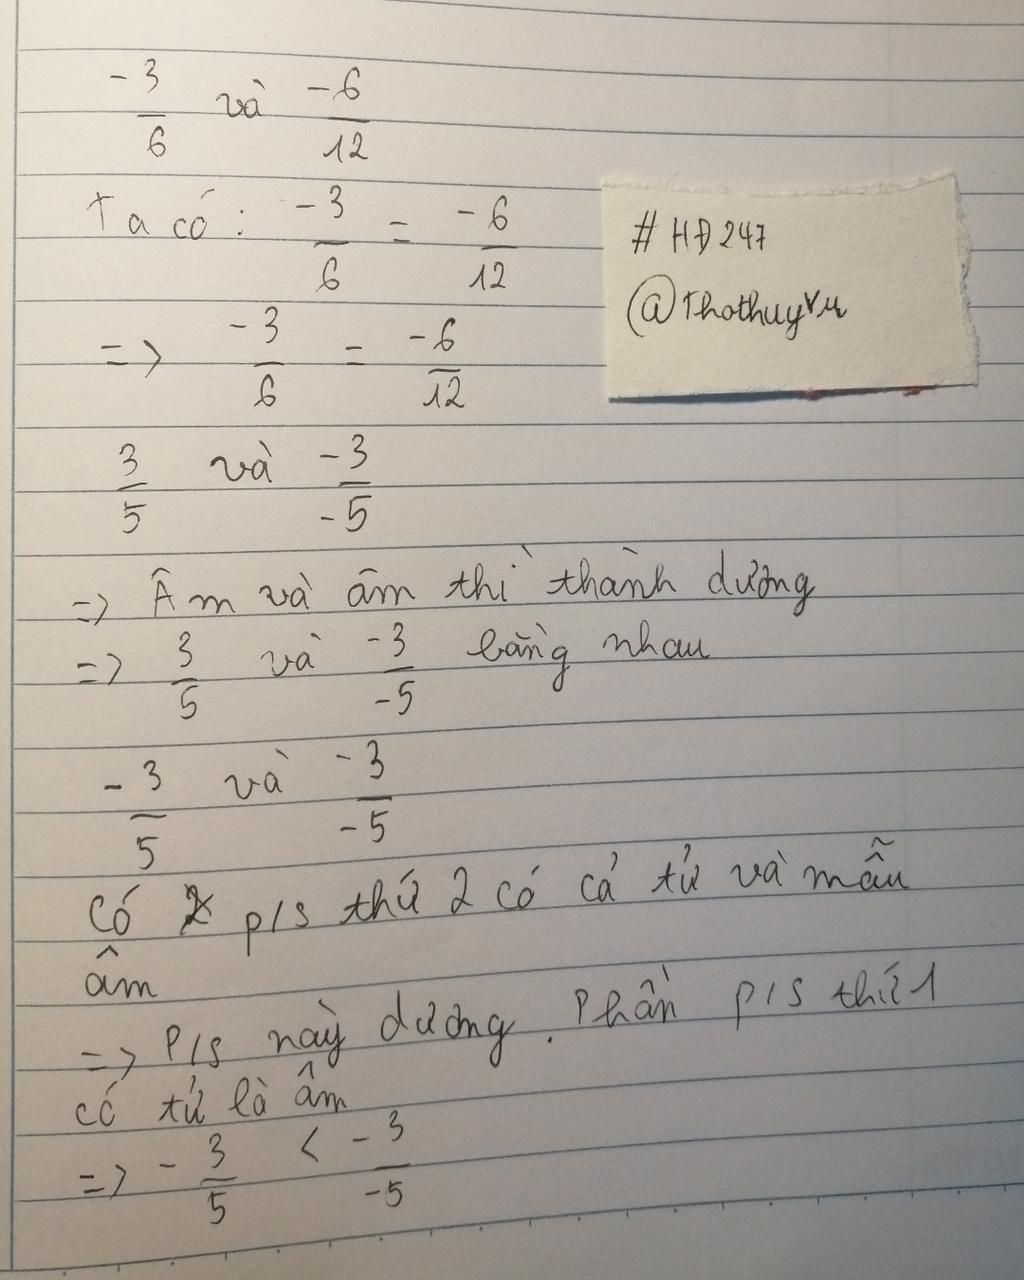 -3/6 và -6/12
Ta có: -3/6 = -6/12
=> -3/6 = -6/12
3/5 và -3/-5
=> Âm và âm thì thành dương
=> 3/5 và -3/-5 bằng nhau
-3/5 và -3/-5
Có p/s thứ 2 có cả tử và mẫu
âm
=> P/s này dương. Phần p/s thứ 1
có tử là âm
=> -3/5 < -3/-5
#HĐ247
@Thothuyvu